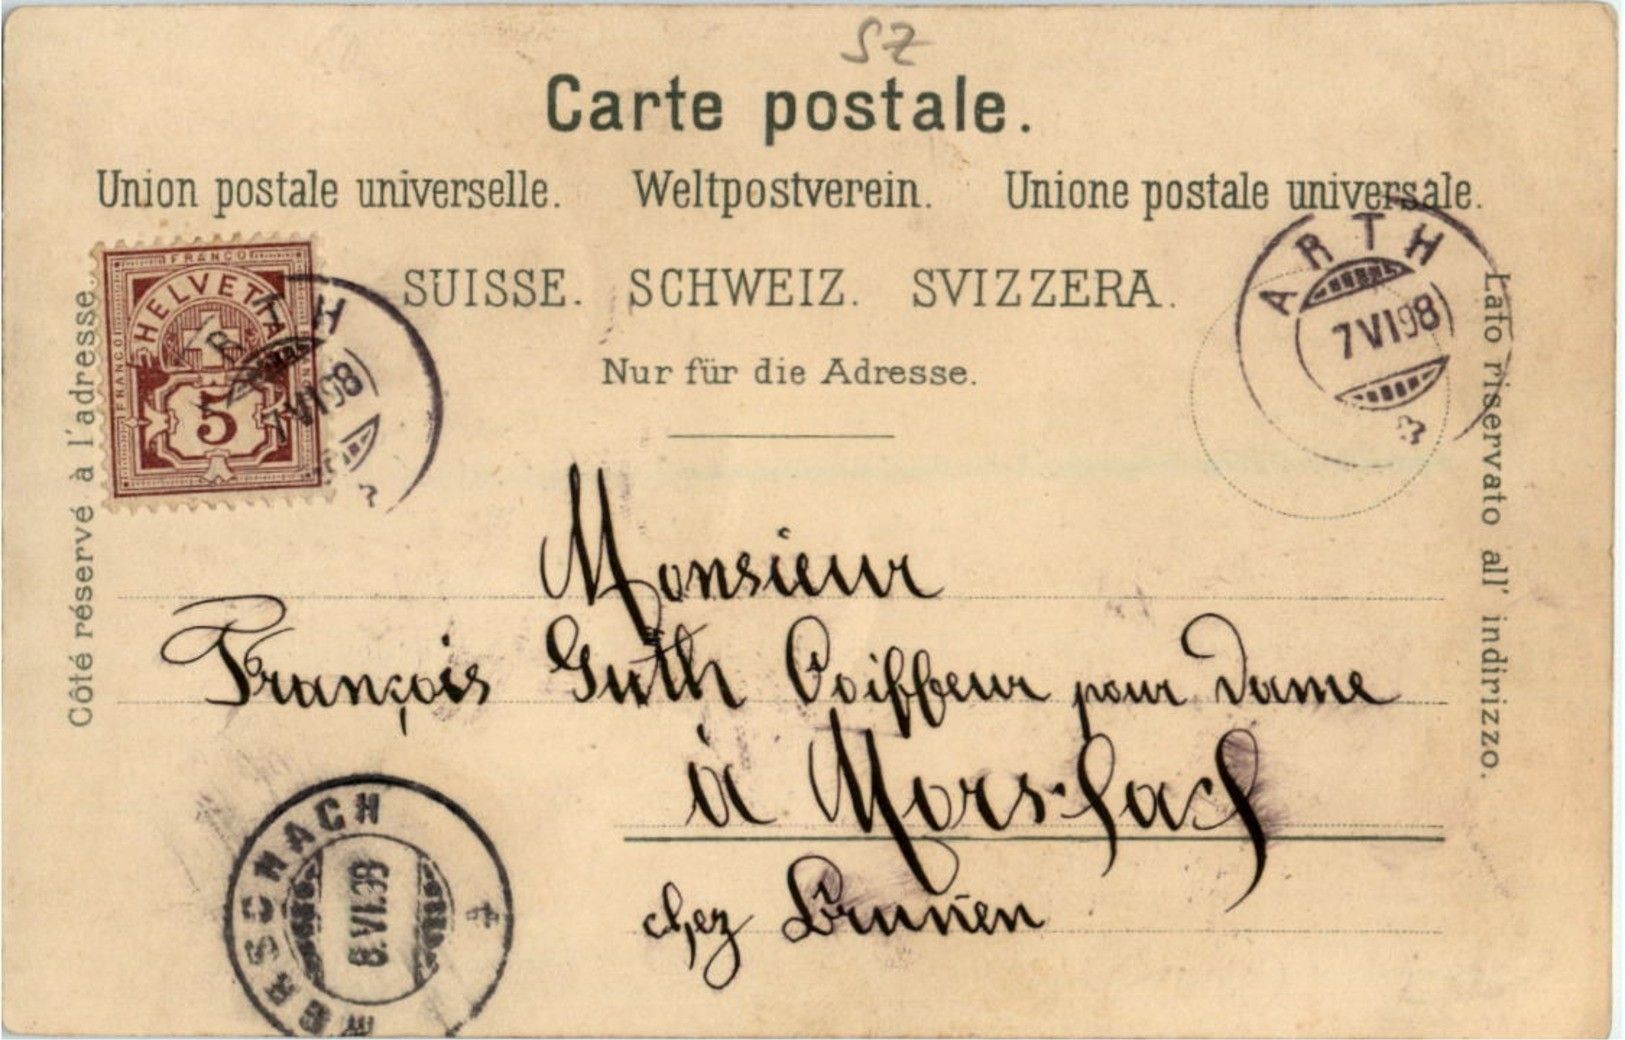 SZ
Carte postale.
Union postale universelle. Weltpostverein. Unione postale universale.
SUISSE. SCHWEIZ. SVIZZERA.
Nur für die Adresse.
Côté réservé à l'adresse.
Lato riservato all' indirizzo.
FRANCO
HELVETIA
FRANCO
5
ARTH
7 VI 98
ARTH
7 VI 98
Monsieur
François Guth Coiffeur pour Dame
à Morschach
chez Brunen
MERSCHACH
8. VI. 98